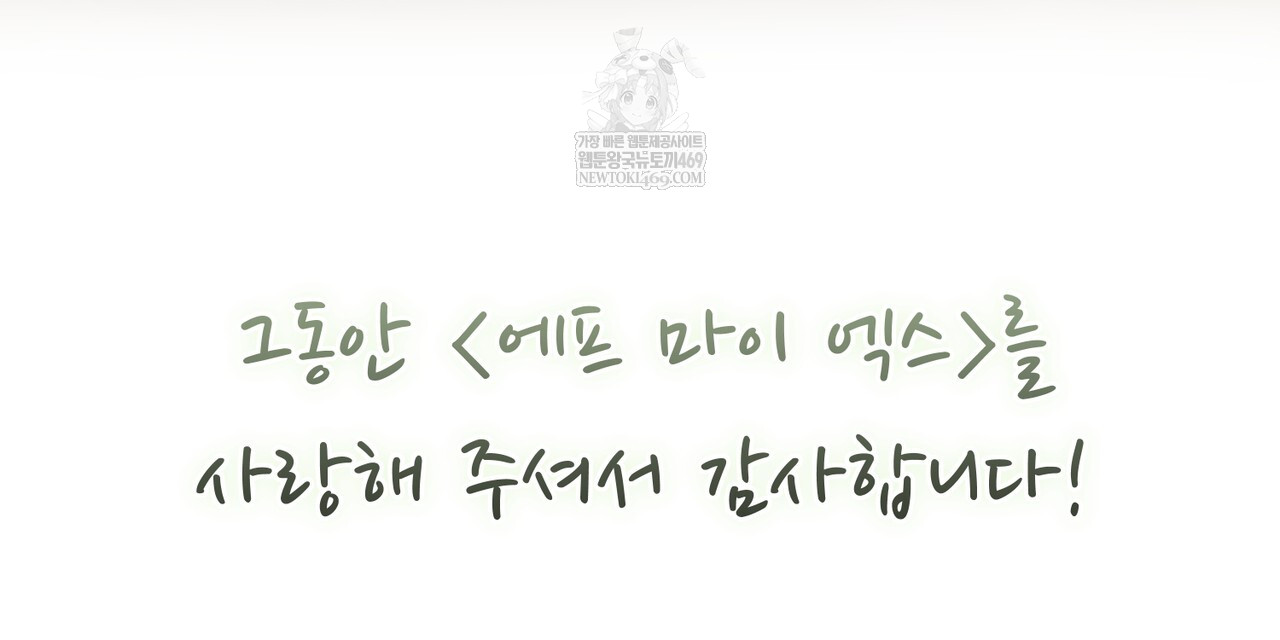 가장 빠른 웹툰제공사이트
웹툰왕국뉴토끼469
NEWTOKI469.COM
그동안 <에프 마이 엑스>를
사랑해 주셔서 감사합니다!